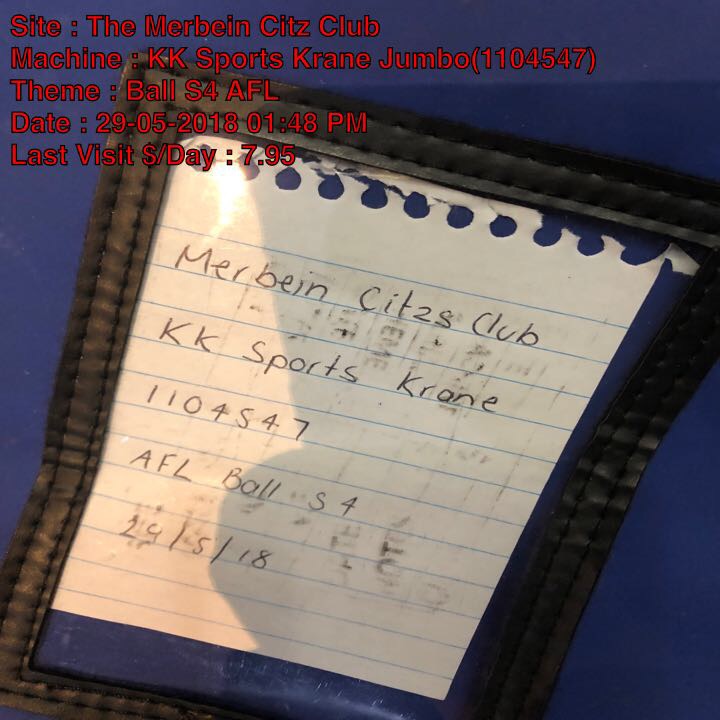 Site : The Merbein Citz Club
Machine : KK Sports Krane Jumbo(1104547)
Theme : Ball S4 AFL
Date : 29-05-2018 01:48 PM
Last Visit $/Day : 7.95
Merbein Citzs Club
KK Sports Krane
1104547
AFL Ball S4
29/5/18